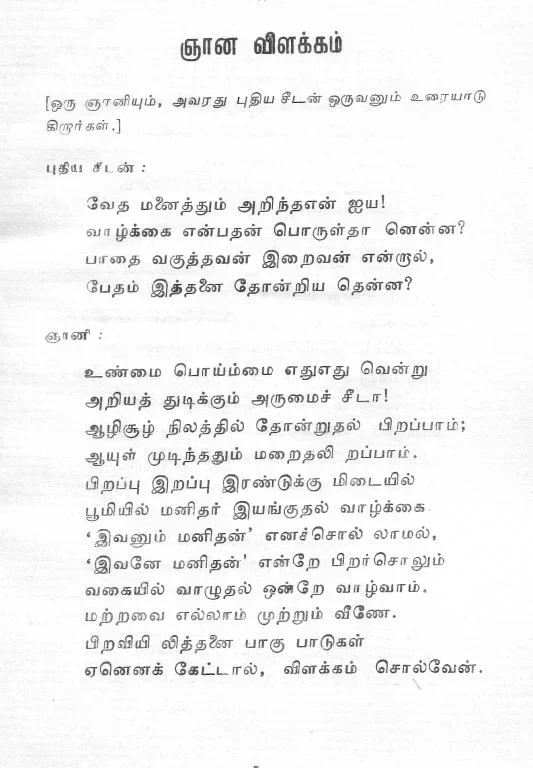 ஞான விளக்கம்
[ஒரு ஞானியும், அவரது புதிய சீடன் ஒருவனும் உரையாடு
கிறார்கள்.]
புதிய சீடன் :
வேத மனைத்தும் அறிந்தஎன் ஐய!
வாழ்க்கை என்பதன் பொருள்தா னென்ன?
பாதை வகுத்தவன் இறைவன் என்றால்,
பேதம் இத்தனை தோன்றிய தென்ன?
ஞானி :
உண்மை பொய்ம்மை எதுஎது வென்று
அறியத் துடிக்கும் அருமைச் சீடா!
ஆழிசூழ் நிலத்தில் தோன்றுதல் பிறப்பாம்;
ஆயுள் முடிந்ததும் மறைதலி றப்பாம்.
பிறப்பு இறப்பு இரண்டுக்கு மிடையில்
பூமியில் மனிதர் இயங்குதல் வாழ்க்கை.
‘இவனும் மனிதன்’ எனச்சொல் லாமல்,
‘இவனே மனிதன்’ என்றே பிறர்சொலும்
வகையில் வாழுதல் ஒன்றே வாழ்வாம்.
மற்றவை எல்லாம் முற்றும் வீணே.
பிறவியி லித்தனை பாகு பாடுகள்
ஏனெனக் கேட்டால், விளக்கம் சொல்வேன்.